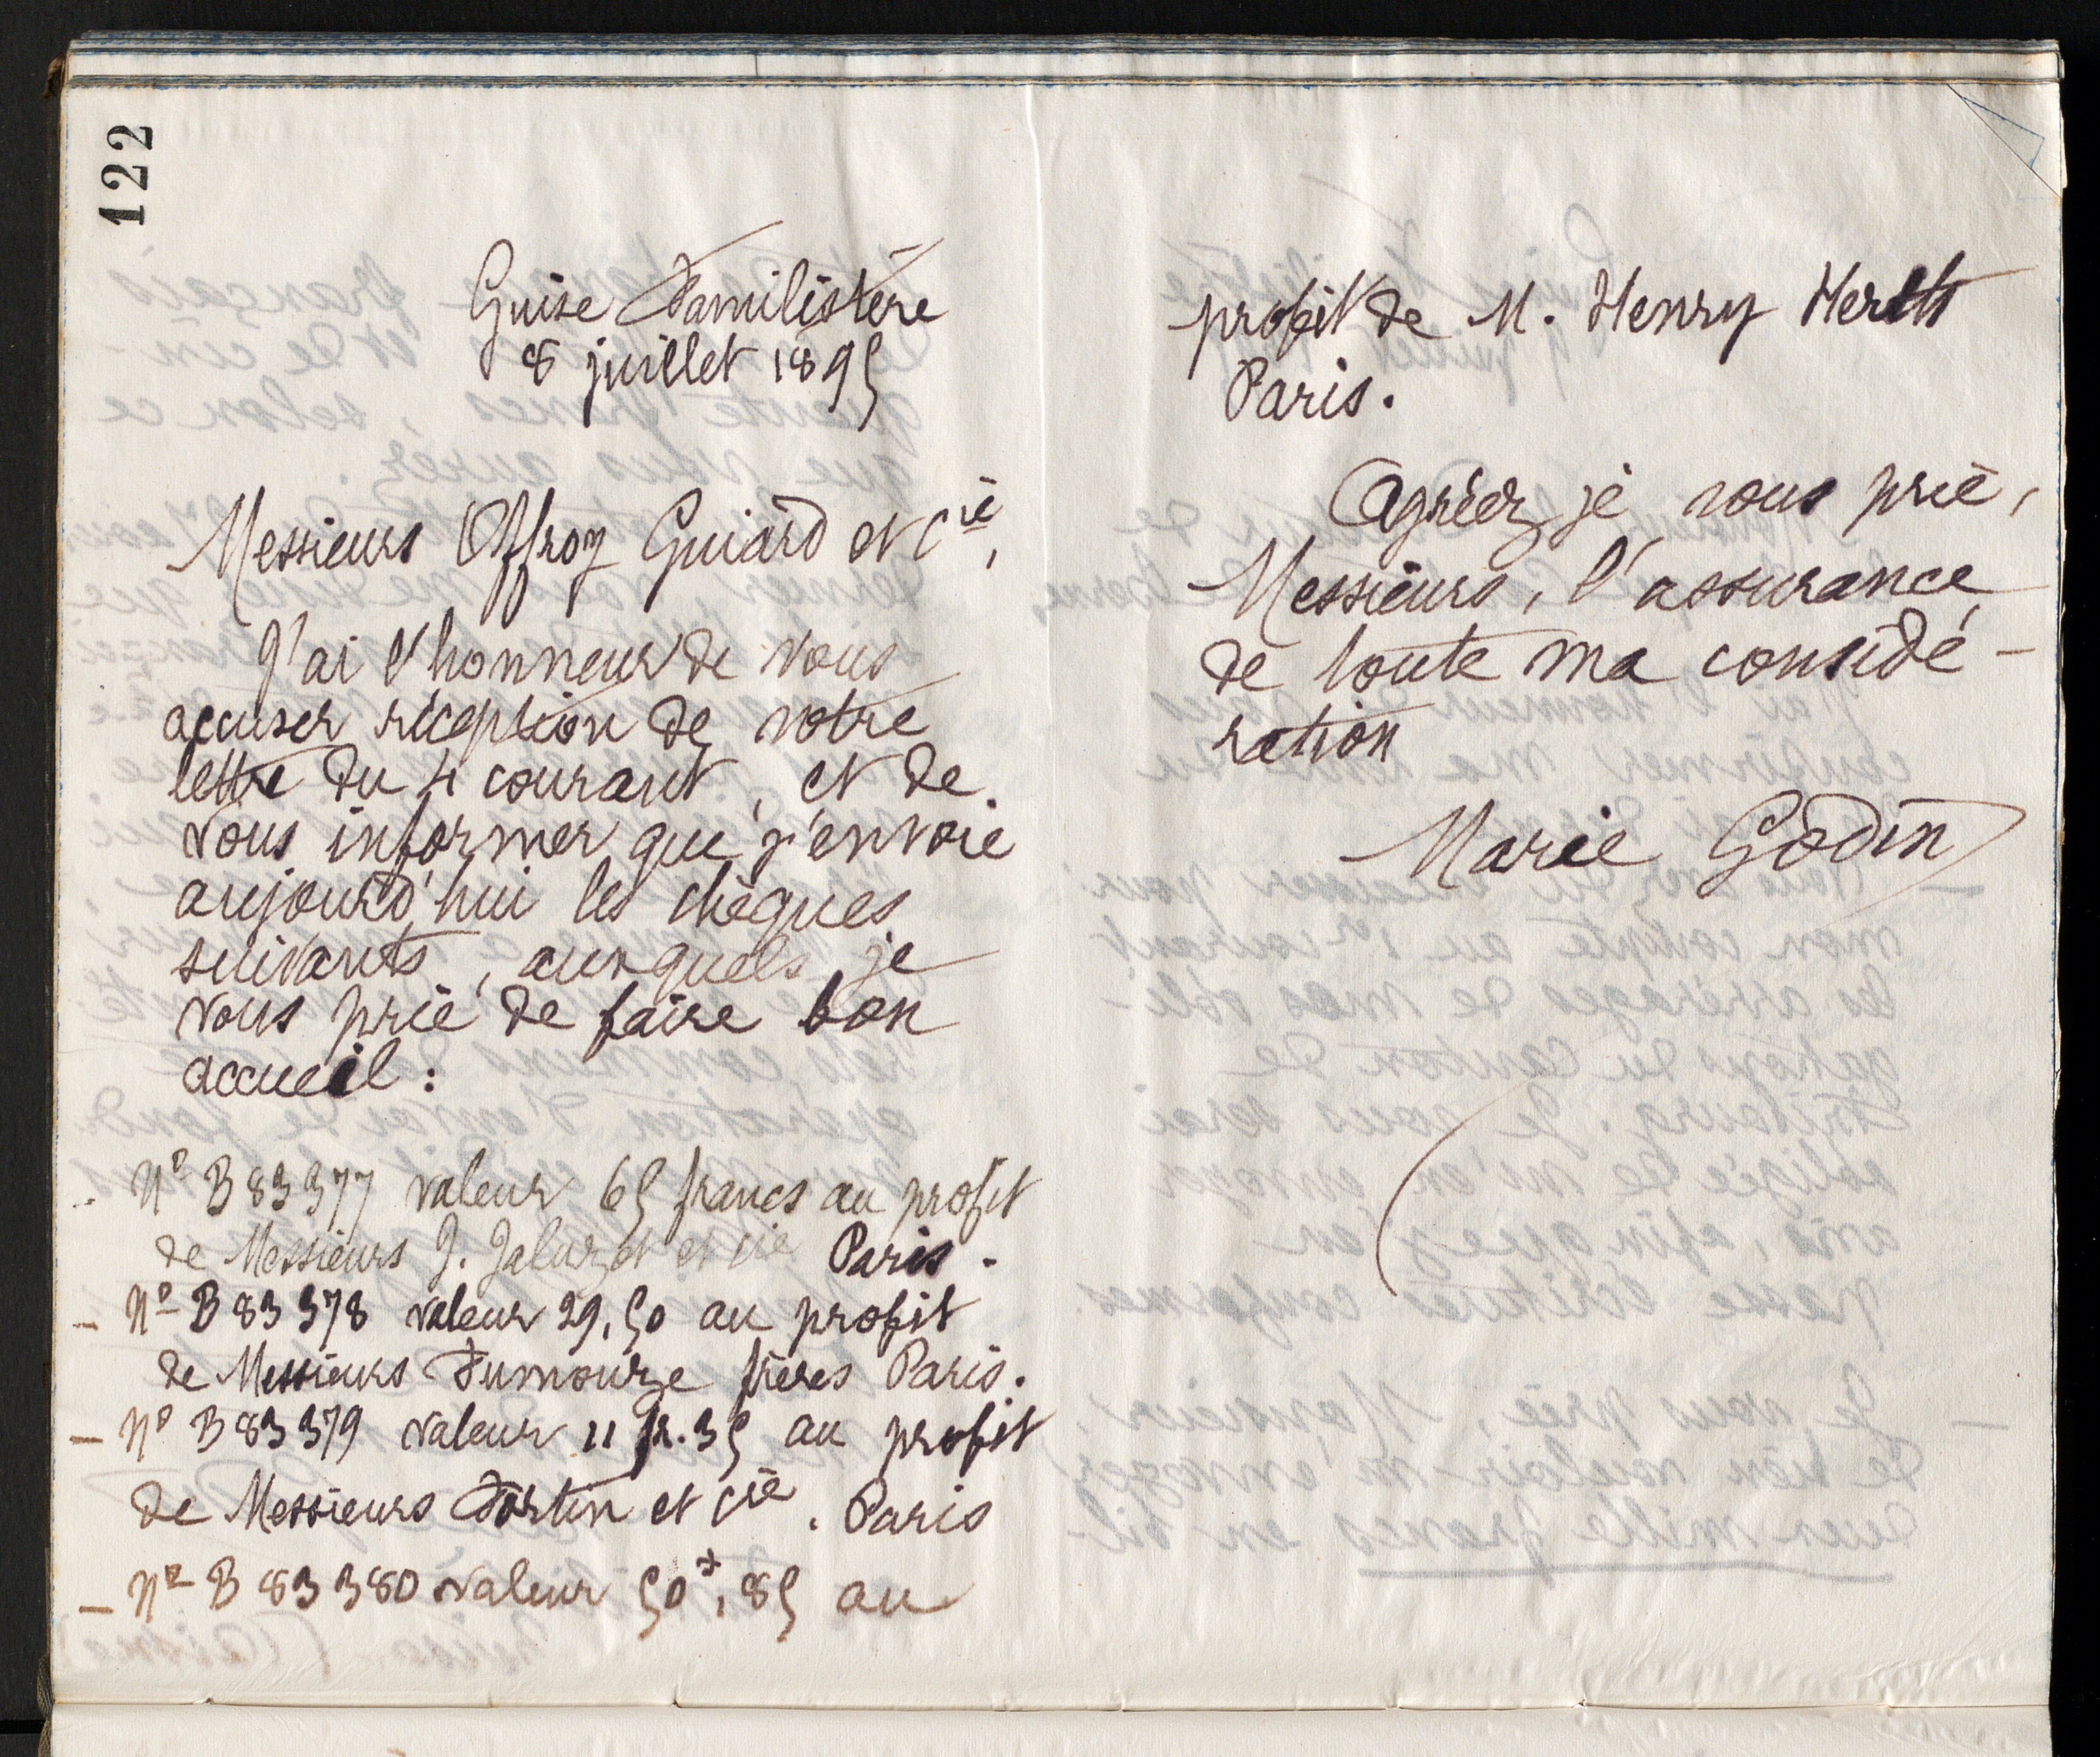 122
Guise Familistère
8 juillet 1895
Messieurs Offroy Guiard et Cie,
J'ai l'honneur de vous
accuser réception de votre
lettre du 4 courant, et de
vous informer que j'envoie
aujourd'hui les chèques
suivants, auxquels je
vous prie de faire bon
accueil :
- N° B 83377 valeur 65 francs au profit
de Messieurs J. Jaluzot et cie Paris.
- N° B 83378 valeur 29,50 au profit
de Messieurs Fumouze frères Paris.
- N° B 83379 valeur 11 fr. 35 au profit
de Messieurs Fortin et Cie. Paris
- N° B 83380 valeur 50f,85 au
profit de M. Henry
Paris.
Agréez je vous prie,
Messieurs, l'assurance
de toute ma considé-
ration
Marie Godin